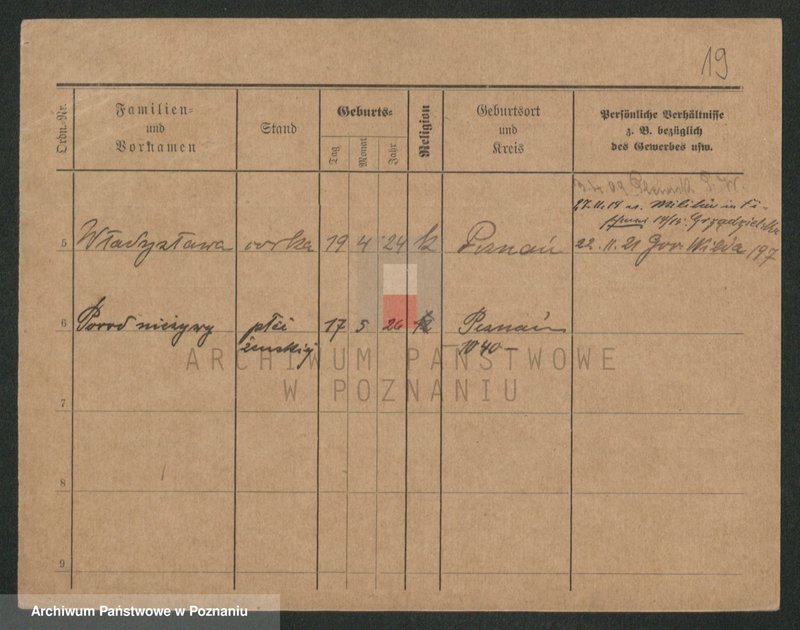 19
Ordn.-Nr.
Familien=
und
Vornamen
Stand
Geburts=
Tag
Monat
Jahr
Religion
Geburtsort
und
Kreis
Persönliche Verhältnisse
z. B. bezüglich
des Gewerbes usw.
17. 11. 14
5 Władysława córka 19 4 24 k Poznań 22. 11. 21 Gór. Wilda 197
6 Poród nieżywy płci 17 5 26 k Poznań
żeńskiej 1040 -
ARCHIWUM PAŃSTWOWE
W POZNANIU
7
8
9
Archiwum Państwowe w Poznaniu